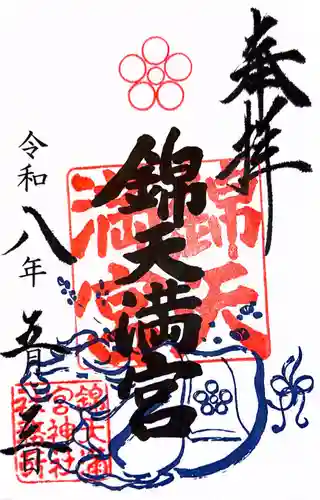 奉拝
錦天満宮
錦天
満宮
令和八年
五月二五日
錦天満
宮神社
社務所